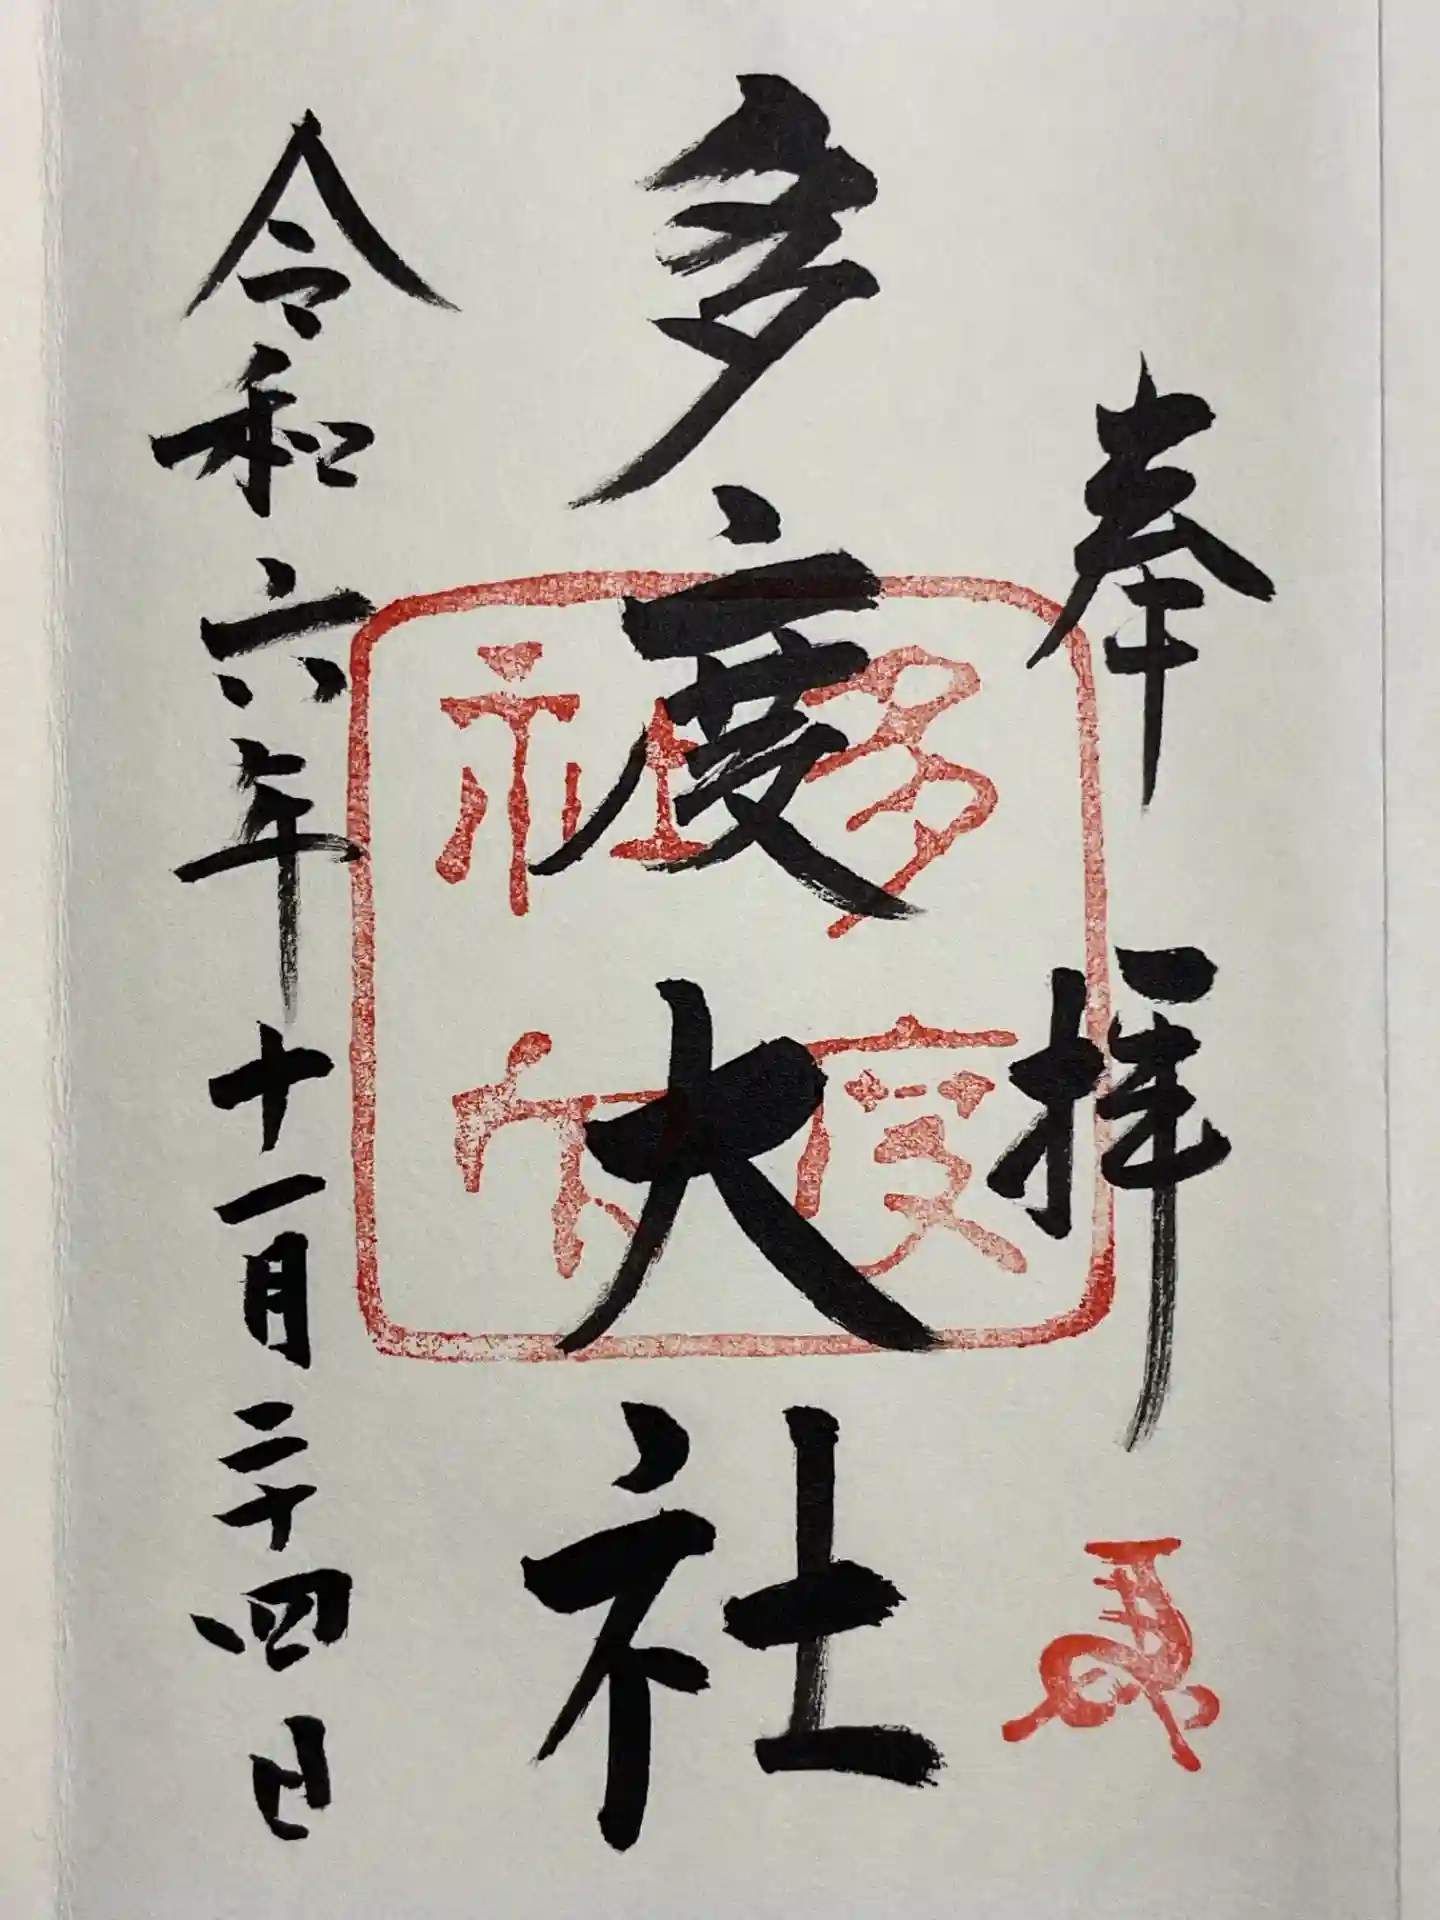 奉拝
多度大社
多度
社印
令和六年十一月二十四日